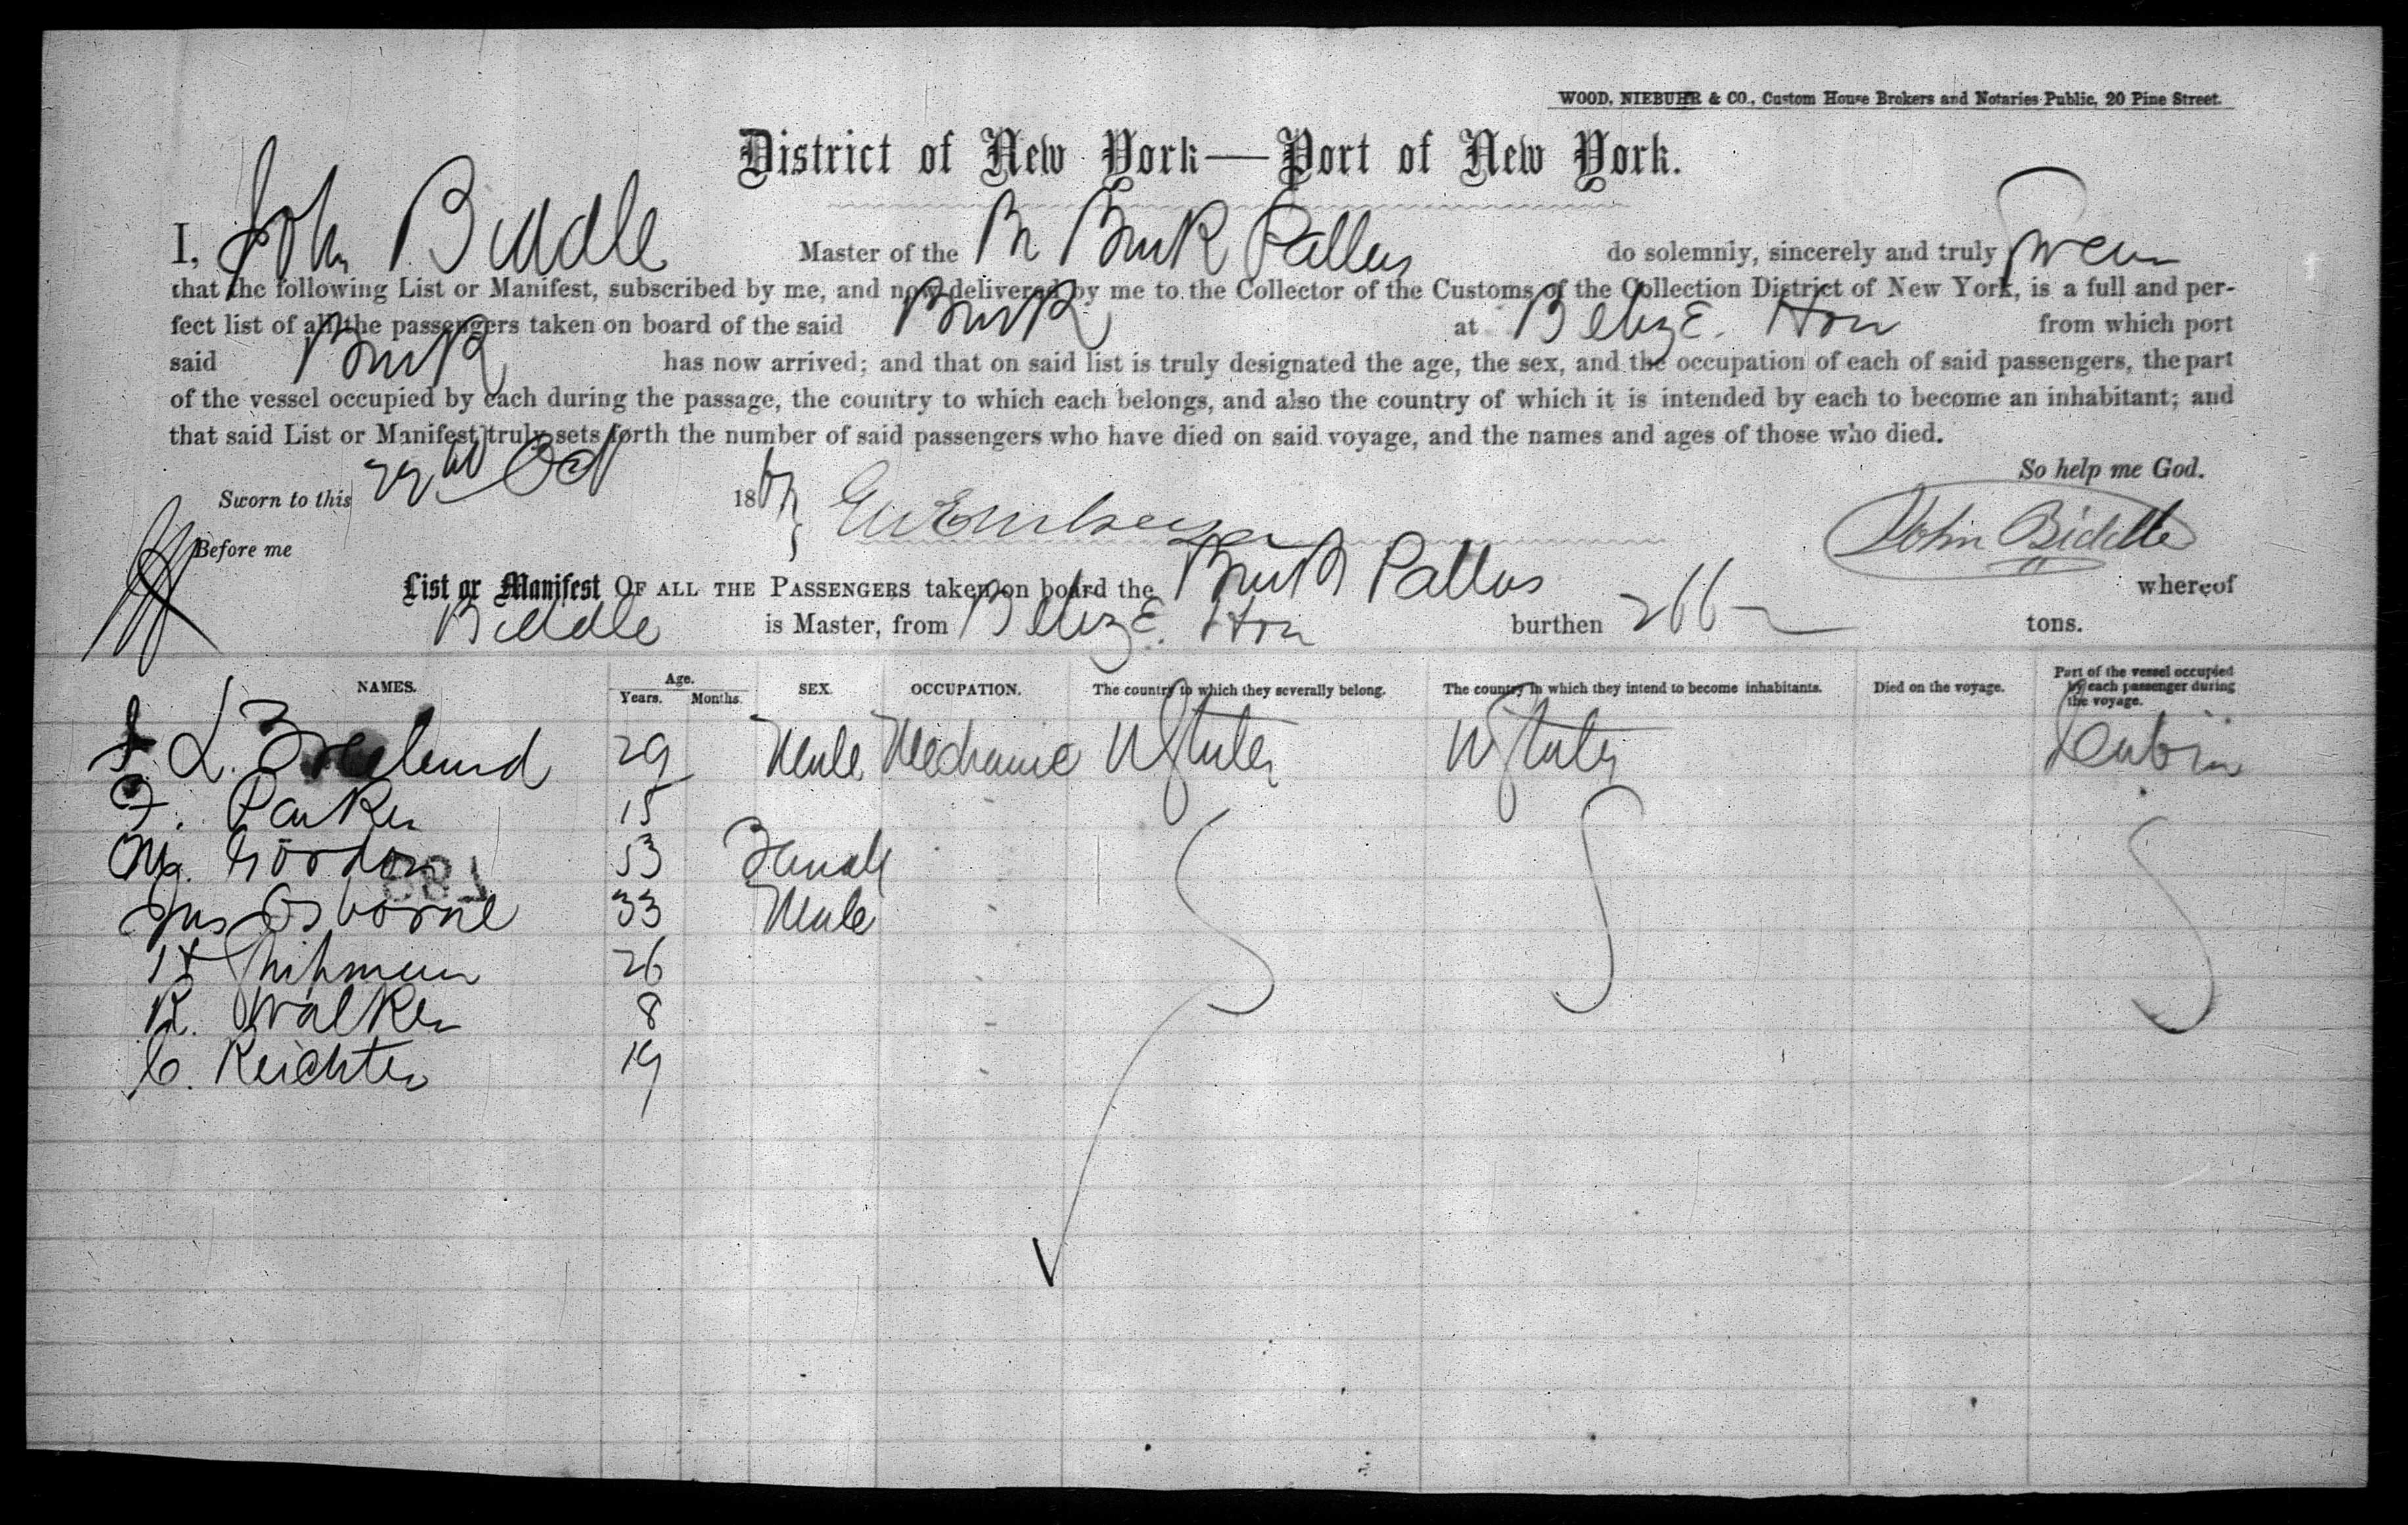 WOOD, NIEBUHR & CO., Custom House Brokers and Notaries Public, 20 Pine Street.
District of New York—Port of New York.
I, John Biddle Master of the Br Bark Pallas do solemnly, sincerely and truly Swear
that the following List or Manifest, subscribed by me, and now delivered by me to the Collector of the Customs of the Collection District of New York, is a full and per-
fect list of all the passengers taken on board of the said Bark at Belize. Hon from which port
said Bark has now arrived; and that on said list is truly designated the age, the sex, and the occupation of each of said passengers, the part
of the vessel occupied by each during the passage, the country to which each belongs, and also the country of which it is intended by each to become an inhabitant; and
that said List or Manifest truly sets forth the number of said passengers who have died on said voyage, and the names and ages of those who died.
So help me God.
Sworn to this 22nd Oct 1867
John Biddle
Before me
List or Manifest OF ALL THE PASSENGERS taken on board the Bark Pallas whereof
Biddle is Master, from Belize. Hon burthen 266 tons.
NAMES. Age. Years. Months. SEX. OCCUPATION. The country to which they severally belong. The country in which they intend to become inhabitants. Died on the voyage. Part of the vessel occupied by each passenger during the voyage.
L. Freelund 29 Male Mechanic U States U States Cabin
F. Parker 15
M. Gordon 53 Female
887
Jas Osborne 33 Male
H Shipman 26
R. Walker 8
C. Reichter 19